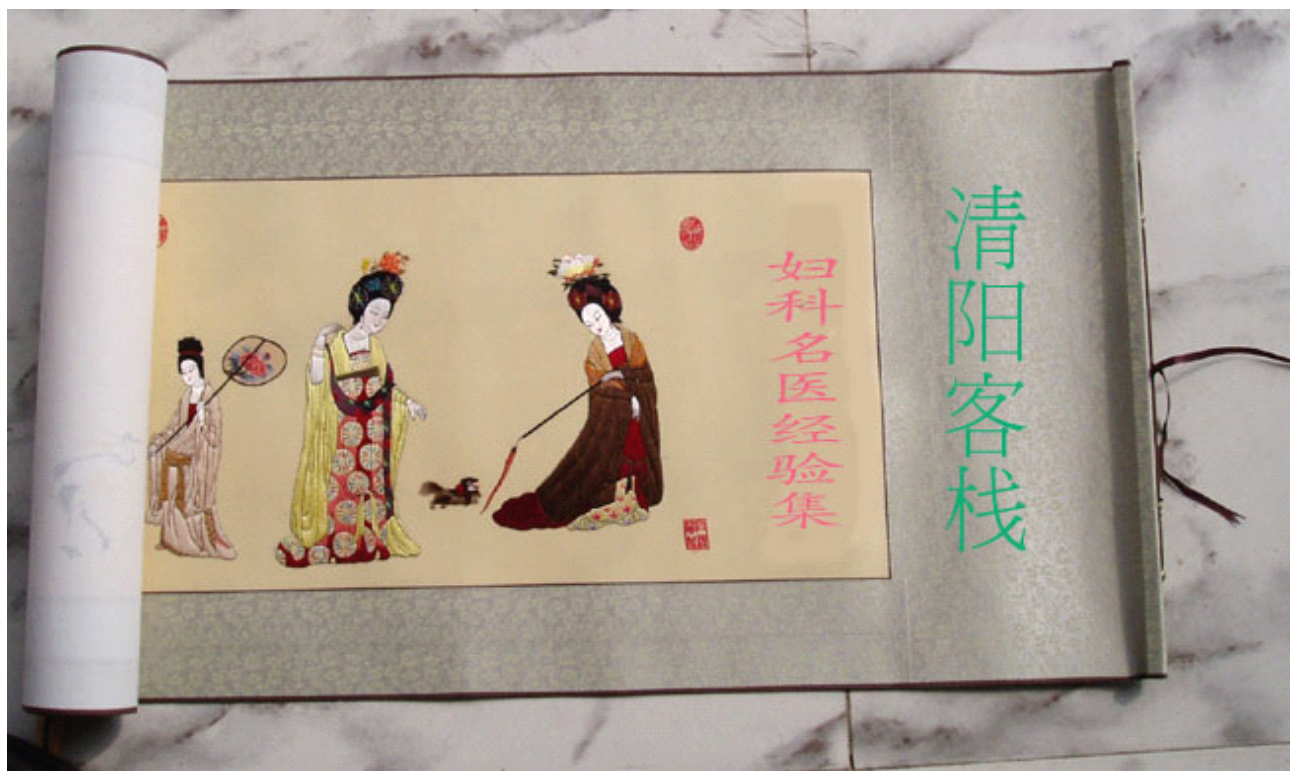 清阳客栈
妇科名医经验集